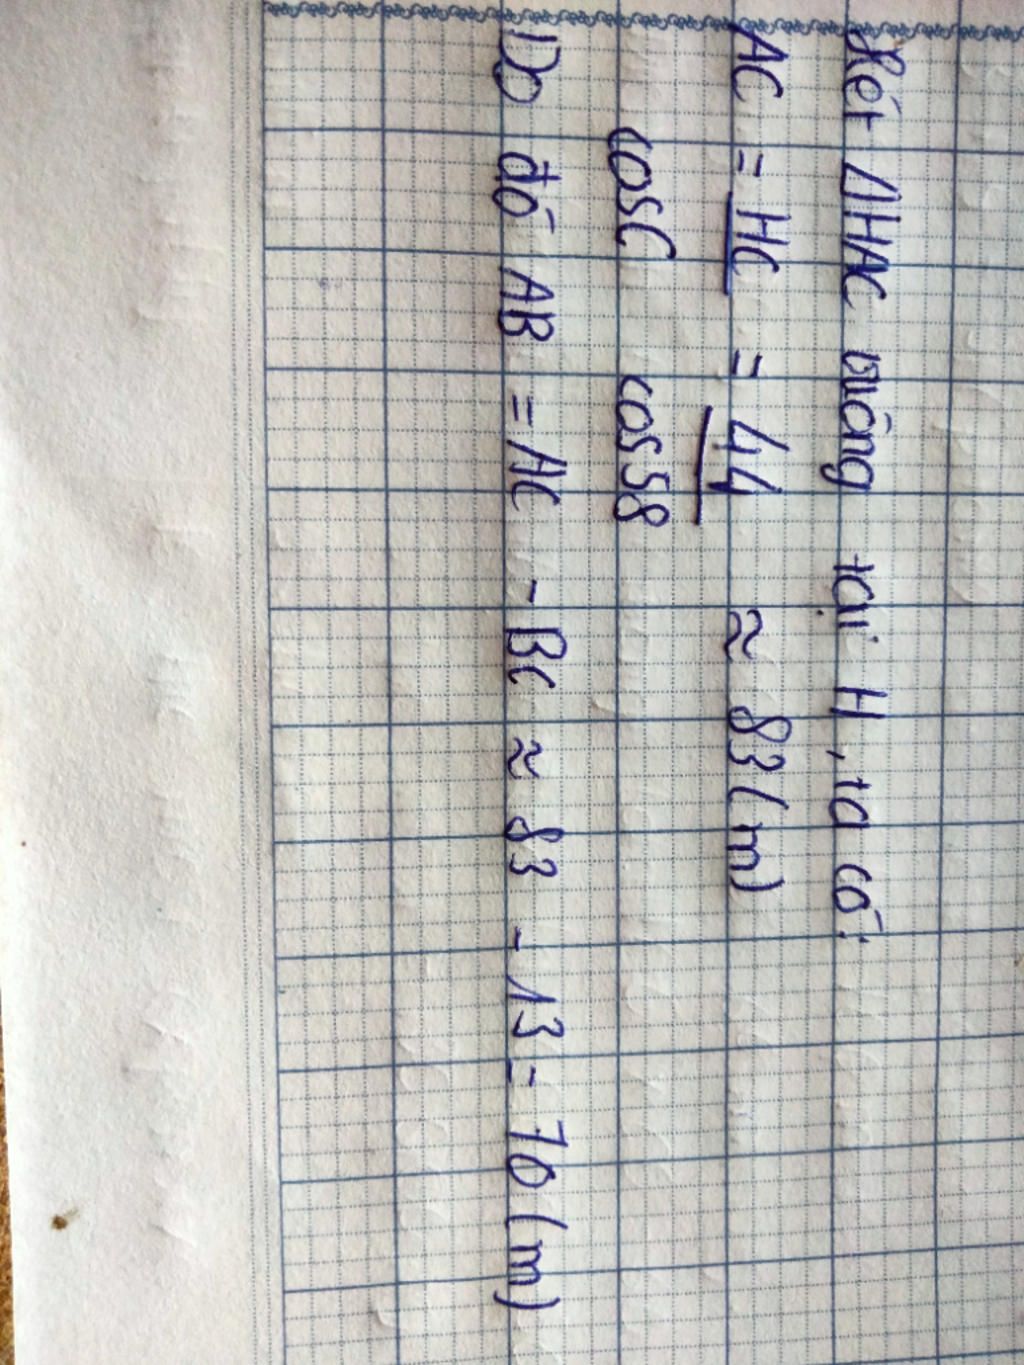 Xét ΔHAC vuông tại H, ta có:
AC = HC = 44 ≈ 83 (m)
cosC cos58
Do đó AB = AC - BC ≈ 83 - 13 = 70 (m)